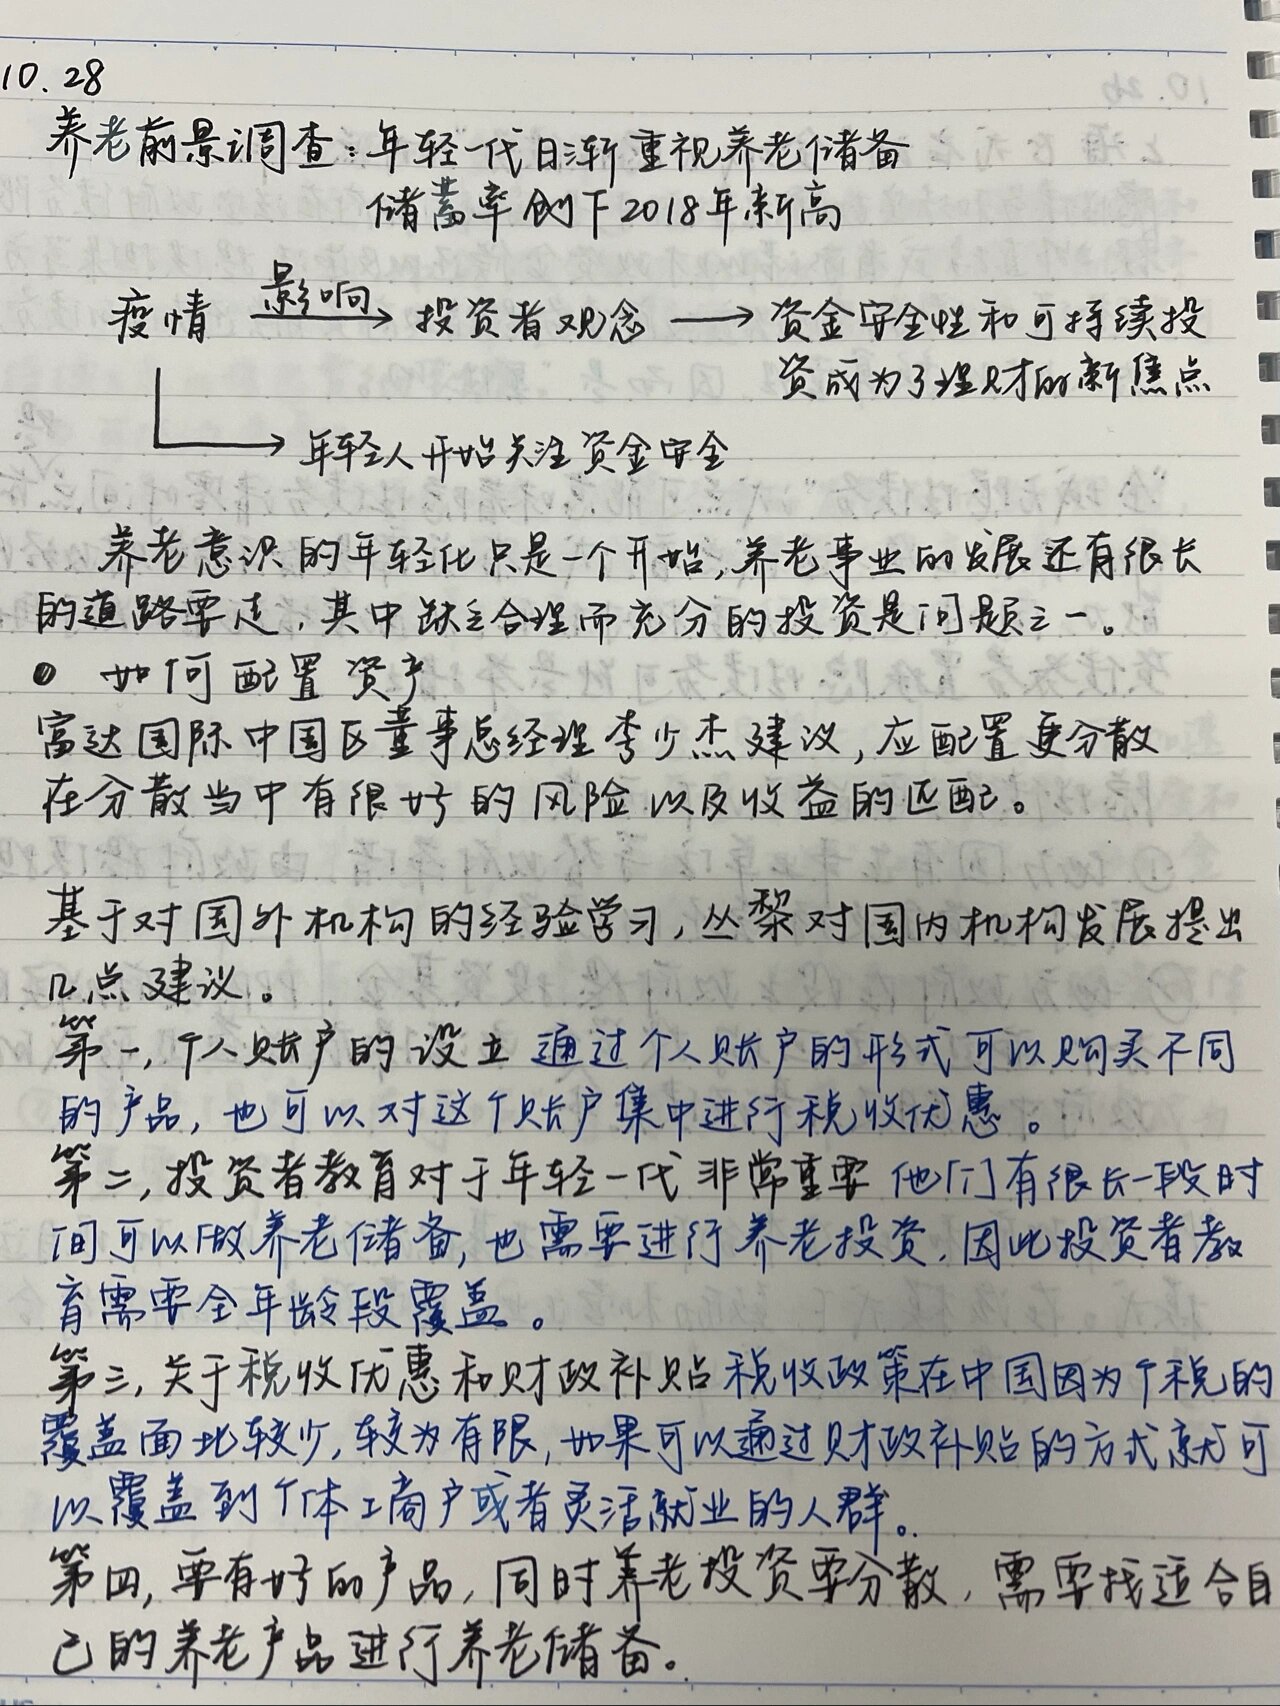 10.28
养老前景调查：年轻一代日渐重视养老储备
储蓄率创下2018年新高
疫情 影响 投资者观念 → 资金安全性和可持续投
资成为了理财的新焦点
→ 年轻人开始关注资金安全
养老意识的年轻化只是一个开始，养老事业的发展还有很长
的道路要走，其中缺乏合理而充分的投资是问题之一。
如何配置资产
富达国际中国区董事总经理李少杰建议，应配置更分散
在分散当中有很好的风险以及收益的匹配。
基于对国外机构的经验学习，丛黎对国内机构发展提出
几点建议。
第一，个人账户的设立 通过个人账户的形式可以购买不同
的产品，也可以对这个账户集中进行税收优惠。
第二，投资者教育对于年轻一代非常重要 他们有很长一段时
间可以做养老储备，也需要进行养老投资，因此投资者教
育需要全年龄段覆盖。
第三，关于税收优惠和财政补贴 税收政策在中国因为个税的
覆盖面比较少，较为有限，如果可以通过财政补贴的方式就可
以覆盖到个体工商户或者灵活就业的人群。
第四，要有好的产品，同时养老投资要分散，需要找适合自
己的养老产品进行养老储备。